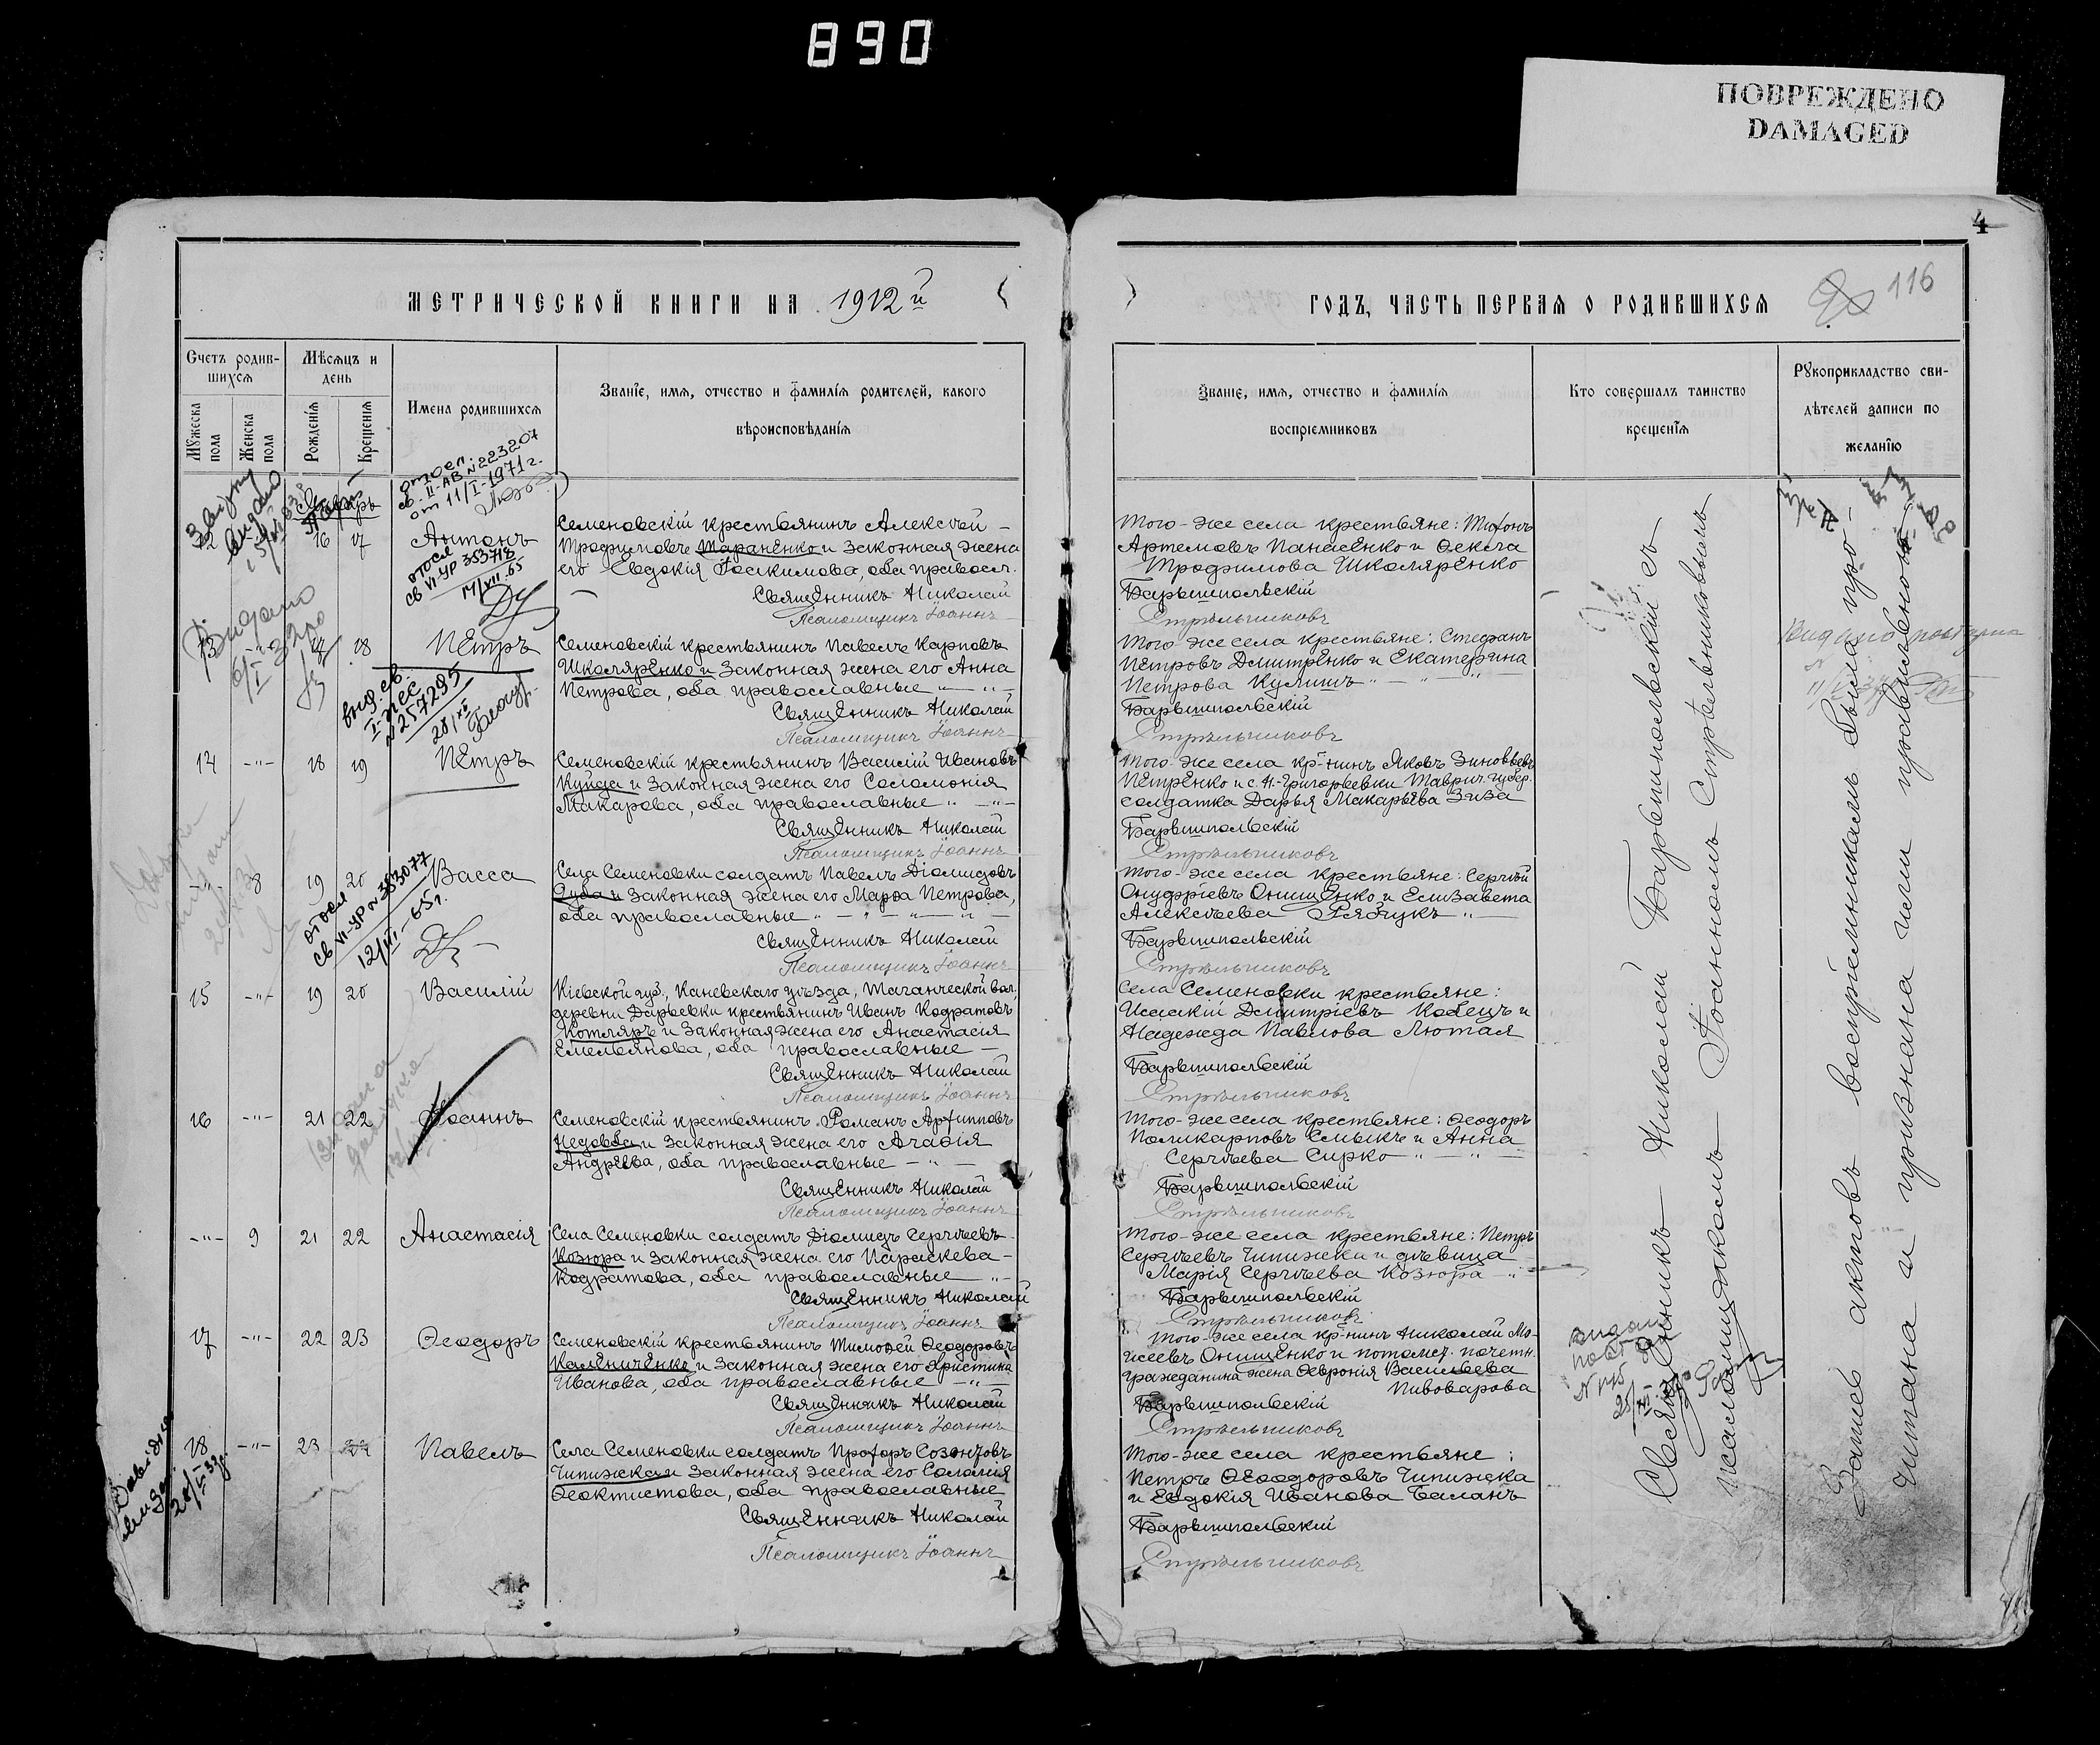 890
ПОВРЕЖДЕНО
DAMAGED
4
116
МЕТРИЧЕСКОЙ КНИГИ НА 1912й
ГОДЪ, ЧАСТЬ ПЕРВАЯ О РОДИВШИХСЯ
Счетъ родив-
шихся
Мѣсяцъ и
день
Мужеска
пола
Женска
пола
Рожденія
Крещенія
Имена родившихся
Званіе, имя, отчество и фамилія родителей, какого
вѣроисповѣданія
Званіе, имя, отчество и фамилія
воспріемниковъ
Кто совершалъ таинство
крещенія
Рукоприкладство сви-
дѣтелей записи по
желанію
св. II-АВ №223207
от 11/I-1971г.
16 17 Антонъ
Семеновскій крестьянинъ Алексѣй -
Трофимовъ Тараненко и законная жена
его Евдокія Іоакимова, оба правосл.
Священникъ Николай
Псаломщикъ Іоаннъ
Того-же села крестьяне: Тифонъ
Артемовъ Панасенко и Ѳекла
Трофимова Школяренко
Барышпольскій
Стрѣльниковъ
св VI-УР 353718
14/VII.65
18 Петръ
Семеновскій крестьянинъ Павелъ Карповъ
Школяренко и законная жена его Анна
Петрова, оба православные
Священникъ Николай
Псаломщикъ Іоаннъ
Того-же села крестьяне: Стефанъ
Петровъ Дмитренко и Екатерина
Петрова Кулишъ
Барышпольскій
Стрѣльниковъ
выд. св.
№257295
14 -"- 18 19 Петръ
Семеновскій крестьянинъ Василій Ивановъ
Куйда и законная жена его Соломонія
Макарова, оба православные
Священникъ Николай
Псаломщикъ Іоаннъ
Того-же села кр-нинъ Яковъ Зиновьевъ
Петренко и с. Н.-Григорьевки Таврич. губер.
солдатка Дарья Макарьева Зиза
Барышпольскій
Стрѣльниковъ
-"- 8 19 20 Васса
Села Семеновки солдатъ Павелъ Діомидовъ
Дуба и законная жена его Марѳа Петрова,
оба православные
Священникъ Николай
Псаломщикъ Іоаннъ
Того-же села крестьяне: Сергѣй
Онуфріевъ Онищенко и Елизавета
Алексѣева Рябчукъ
Барышпольскій
Стрѣльниковъ
св VI-УР №353077
15 -"- 19 20 Василій
Кіевской губ., Каневскаго уѣзда, Таганческой вол.,
деревни Дарьевки крестьянинъ Иванъ Кодратовъ
Котляръ и законная жена его Анастасія
Емельянова, оба православные -
Священникъ Николай
Псаломщикъ Іоаннъ
Села Семеновки крестьяне:
Дмитріевъ Кобецъ и
Надежда Павлова Лютая
Барышпольскій
Стрѣльниковъ
16 -"- 21 22 Іоаннъ
Семеновскій крестьянинъ Романъ Архипповъ
Недовба и законная жена его Агаѳія
Андреева, оба православные
Священникъ Николай
Псаломщикъ Іоаннъ
Того-же села крестьяне: Ѳеодоръ
Поликарповъ Смыкъ и Анна
Сергѣева Сирко
Барышпольскій
Стрѣльниковъ
-"- 9 21 22 Анастасія
Села Семеновки солдатъ Діомидъ Сергѣевъ
Козюра и законная жена его Параскева -
Кодратова, оба православные
Священникъ Николай
Псаломщикъ Іоаннъ
Того-же села крестьяне: Петръ
Сергѣевъ Чипижка и дѣвица
Марія Сергѣева Козюра
Барышпольскій
Стрѣльниковъ
17 -"- 22 23 Ѳеодоръ
Семеновскій крестьянинъ Тимоѳей Ѳеодоровъ
Калениченко и законная жена его Христина
Иванова, оба православные
Священникъ Николай
Псаломщикъ Іоаннъ
Того-же села кр-нинъ Николай Мо-
исеевъ Онищенко и потомст. почетн.
гражданина жена Ѳевронія Васильева
Пивоварова
Барышпольскій
Стрѣльниковъ
18 -"- 23 Павелъ
Села Семеновки солдатъ Прохоръ Созонтовъ
Чипижка и законная жена его Саломія
Ѳеоктистова, оба православные
Священникъ Николай
Псаломщикъ Іоаннъ
Того-же села крестьяне:
Петръ Ѳеодоровъ Чипижка
и Евдокія Иванова Баланъ
Барышпольскій
Стрѣльниковъ
Священникъ Николай Барышпольскій съ
псаломщикомъ Іоанномъ Стрѣльниковымъ
Запись актовъ воспріемникамъ была про-
читана и признана ими правильною